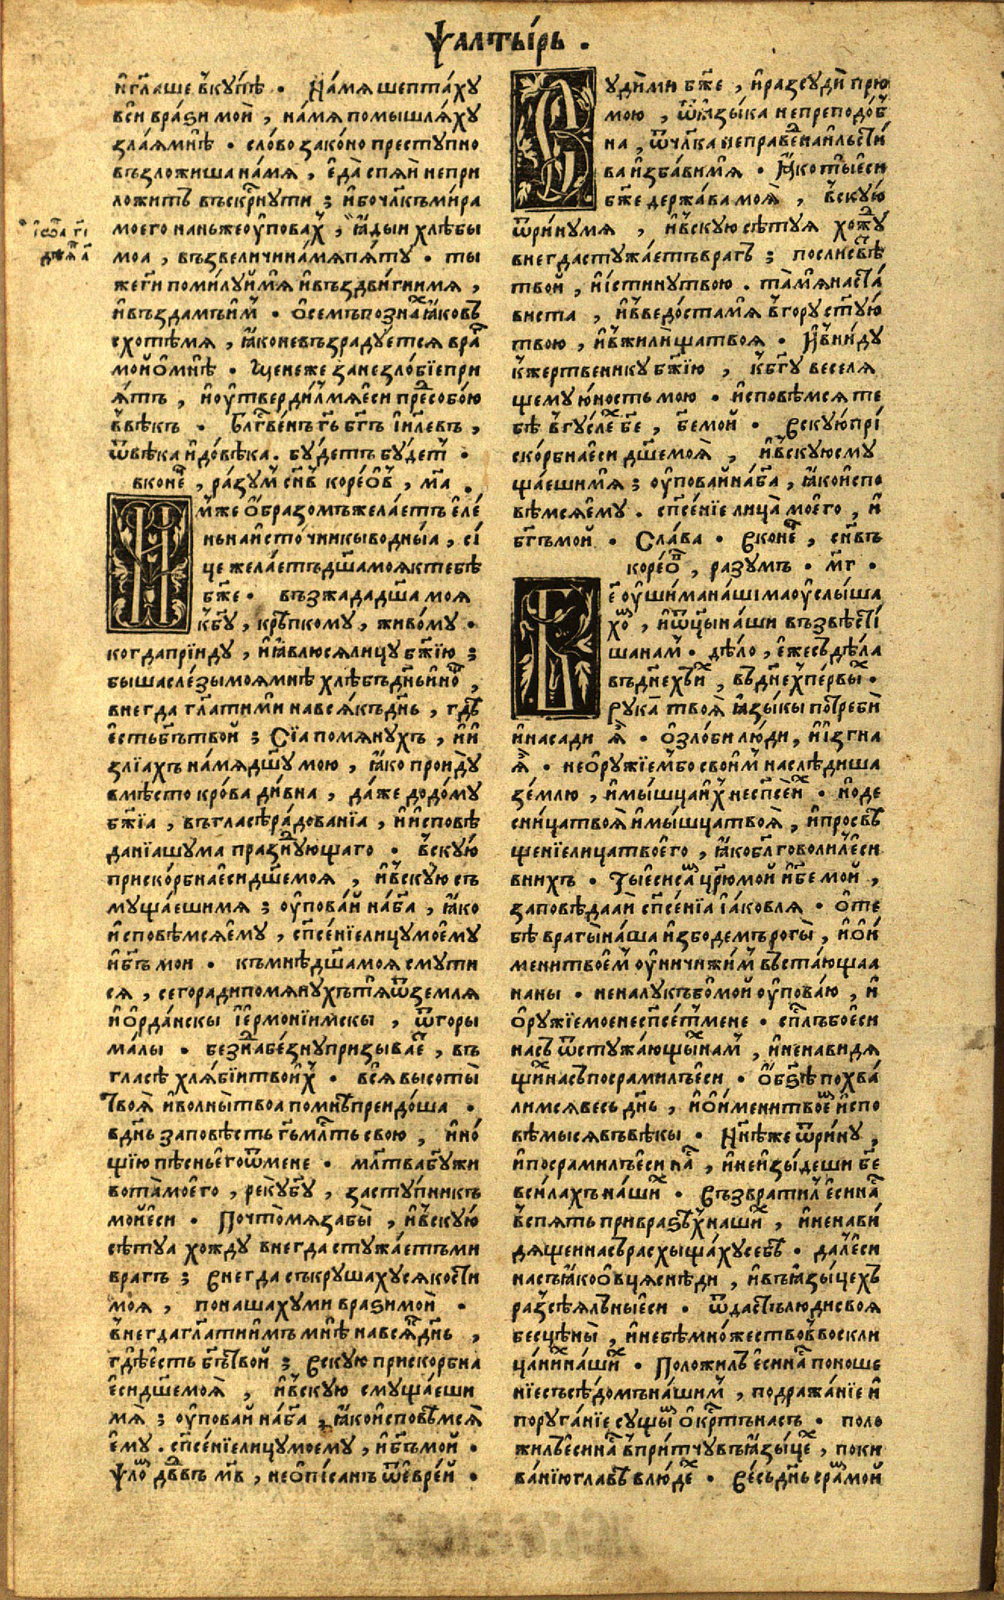 Ѱалты́рь .
и҆ гл҃аше в҆ку́пѣ . На́мѧ шепта́ху
вси враѕи мои̇ , на́мѧ помышлѧ́ху
злаѧ мнѣ . сло́во зако́но престу́пно
въ́зложиша на́мѧ , є҆да спѧи непри
ложитъ въскрⷭ҇нути ; и҆бо чл҃къ ми́ра
моего наньже оу҆пова́х , ꙗ҆ды́и хлѣ́бы
моа , възвеличи на́мѧ пѧ́ту . ты
же гⷭ҇и поми́луй мѧ и҆ въздви́гни мѧ ,
и҆ въздамъ и҆мⸯ . о҆ семъ позна́хⸯ ꙗ҆ковъ
схотѣ мѧ , ꙗ҆ко не възра́дуетсѧ вра́гⸯ
мой о҆ мнѣ . Мене же за незло́бїе при
ѧ́тъ , и҆ оу҆твердилⸯ мѧ еси пре́дⸯ собо́ю
в҆ вѣ́къ . Блⷭ҇ве́нъ гь҃ бг҃ъ і҆и҃левъ ,
ѿ вѣ́ка и҆ до вѣ́ка . бу́детъ бу́детⸯ .
в коне́цⸯ , ра́зумⸯ сн҃в корео҆вⸯ , м҃а .
И҆́мже о҆́бразомъ жела́етъ є҆ле́
нь на и҆сто́чники во́дны́а , си́
це жела́етъ дш҃а моѧ к тебѣ
бж҃е . възжада дш҃а моѧ
к҆ бг҃у , крѣ́пкому , живо́му .
когда прїиду , и҆ ꙗ҆влюсѧ лицу бж҃їю ;
быша сле́зы моѧ мнѣ хлѣ́бъ дн҃ь и҆ но́щь ,
внегда гл҃ати ми на всѧкъ дн҃ь , гдѣ
є҆сть бг҃ъ твой ; Сїа помѧну́хъ , и҆ и҆
злїахъ на́мѧ дш҃у мою , ꙗ҆ко прои́ду
вмѣ́сто кро́ва ди́вна , да́же до до́му
бж҃їа , въ гласѣ ра́дованїа , и҆ и҆сповѣ
данїа шума пра́зⷣнующаго . в҆скую
приско́рбна є҆си дш҃е моѧ , и҆ в҆ску́ю съ
муща́еши мѧ ; оу҆пова́й на бг҃а , ꙗ҆ко
и҆сповѣ́мсѧ є҆му , спⷭ҇е́нїе лицу моє҆му
и҆ бг҃ъ мои . къ мнѣ дш҃а моѧ смути
сѧ , сего ради помѧну́хъ тѧ ѿ землѧ
и҆о҆рда́нскы і҆ермонїимскы , ѿ горы
ма́лы . бе́зⷣна бе́зⷣну призыва́етⸯ , въ
гласѣ хлѧбїи твои́хⸯ . всѧ высоты̀
твоѧ̀ и҆ волны̀ твоа по мнѣ преидо́ша .
в дн҃ь заповѣ́сть гь҃ млⷭ҇ть свою , и҆ но́
щїю пѣ́снь є҆го ѿ мене . мл҃тва бг҃у жи
вота̀ моє҆го , реку̀ бг҃у , засту́пникъ
мой є҆си . Почто̀ мѧ забы̀ , и҆ в҆скую
сѣ́туа хожду внегда стужа́етъ ми
врагъ ; Внегда съкруша́хусѧ ко́сти
моѧ , поноша́ху ми враѕи мои̇ .
в҆негда гл҃ати и҆мъ мнѣ на всѧ́кⸯ дн҃ь ,
гдѣ є҆сть бг҃ъ твой ; Вскую приско́рбна
є҆си дш҃е моѧ̀ , и҆ в҆скую смуща́еши
мѧ̀ ; оу҆повай на бг҃а , ꙗ҆ко и҆сповѣ́мсѧ̀
є҆му . спⷭ҇е́нїе лицу моему , и҆ бг҃ъ мой .
Ѱло́мⸯ дв҃двъ м҃в , не о҆пи́санъ ѿ є҆вре́й .
Суди́ ми бж҃е , и҆ разсуди̇ прю̀
мою , ѿ ꙗ҆зы́ка непреподо́б
на , ѿ чл҃ка непра́ведⷣна и҆ льсти́
ва и҆зба́ви мѧ . Ꙗ҆ко ты є҆си
бж҃е держа́ва моѧ̀ , в҆ску́ю
ѿри́ну мѧ , и҆ в҆скую сѣ́туѧ хожⷣу
внегда стужа́етъ врагъ ; посли свѣ́тⸯ
твой , и҆ и҆́стину твою . та́ мѧ наста́
виста , и҆ в҆ведо́ста мѧ в҆ гору ст҃у́ю
твою , и҆ в҆ жили́ща твоѧ . И҆ в҆ни́ду
к҆ же́ртвенику бж҃їю , к҆ бг҃у веселѧ
щему ю҆ность мою . и҆сповѣ́мсѧ те
бѣ в҆ гу́слехⸯ бж҃е , бж҃е мой . Вскую при́
ско́рбна еси дш҃е моѧ̀ , и҆ в҆скую сму
ща́еши мѧ ; оу҆повай на бг҃а , ꙗ҆ко и҆спо
вѣмсѧ ему . спⷭ҇е́нїе лица̀ моего , и҆
бг҃ъ мой . Сла́ва . В коне́цⸯ , сн҃въ
корео́вⸯ , разумъ . м҃г .
Бж҃е оу҆шима на́шима оу҆слы́ша
хо́мⸯ , и҆ ѿц҃ы на́ши възвѣсти́
ша намⸯ . дѣ́ло , є҆же съдѣ́ла
въ дне́хъ и҆́хⸯ , въ дне́хⸯ пе́рвыхⸯ .
Рука̀ твоѧ̀ ꙗ҆зы́кы потреби̇
и҆ насади ѧ҆̀ . о҆зло́би лю́ди , и҆ и҆згна
ѧ҆̀ . не о҆ру́жїемⸯ бо свои́мⸯ наслѣ́диша
зе́млю , и҆ мы́шца и҆́хⸯ не спⷭ҇е и҆́хⸯ . но де
сни́ца твоѧ̀ и҆ мы́шца твоѧ̀ , и҆ просвѣ
ще́нїе лица твоє҆го , ꙗ҆ко бл҃говоли́лⸯ є҆си
в нихъ . Ты є҆си са́мⸯ цр҃ю мой и҆ бж҃е мой ,
заповѣ́даай спⷭ҇е́нїа і҆а́ковлѧ . о҆ те
бѣ врагы̀ на́ша и҆збодемъ рогы̀ , и҆ о҆ и҆́
мени твоє҆мⸯ оу҆ничижи́мⸯ въста́ющаа
на ны . не на лукъ бо мой оу҆пова́ю , и҆
о҆ру́жїе мое не спⷭ҇е́тⸯ мене . спⷭ҇лъ бо є҆си
насъ ѿ стужа́ющы́хⸯ намⸯ , и҆ ненави́дѧ
щи́хⸯ насъ посрамилъ є҆си . Ѡ҆ бѕѣ похва́
лимсѧ весь дн҃ь , и҆ о҆ и҆мени твое́мⸯ и҆спо
вѣ́мысѧ въ вѣ́кы . Нн҃ѣ же ѿри́ну ,
и҆ посрамилъ є҆си на́съ , и҆ не и҆зы́деши бж҃е
в си́лахъ на́шихⸯ . Възврати́лⸯ є҆си на́съ
в҆спѧть при враѕѣ́хⸯ на́шихⸯ , и҆ ненави́
дѧщеи насъ расхыща́ху себѣ . да́лⸯ є҆си
насъ ꙗ҆ко о҆вцѧ снѣ́ди , и҆ въ ꙗ҆зы́цехъ
разⸯсѣ́ѧлъ ны є҆си . ѿда́стъ лю́ди своѧ
бесцѣны̀ , и҆ не бѣ мно́жество в҆ воскли
ца́нїихⸯ на́шихⸯ . Положи́лъ є҆си на́съ поноше
нїе съсѣ́домъ на́шимⸯ , подража́нїе и҆
поруга́нїе су́щымⸯ о҆́крⷭ҇тъ насъ . поло
жилъ є҆си на́съ в҆ при́тчу въ ꙗ҆зы́цехⸯ , поки
ва́нїю главѣ̀ в лю́дехⸯ . Ве́сь дн҃ь сра́мⸯ мой